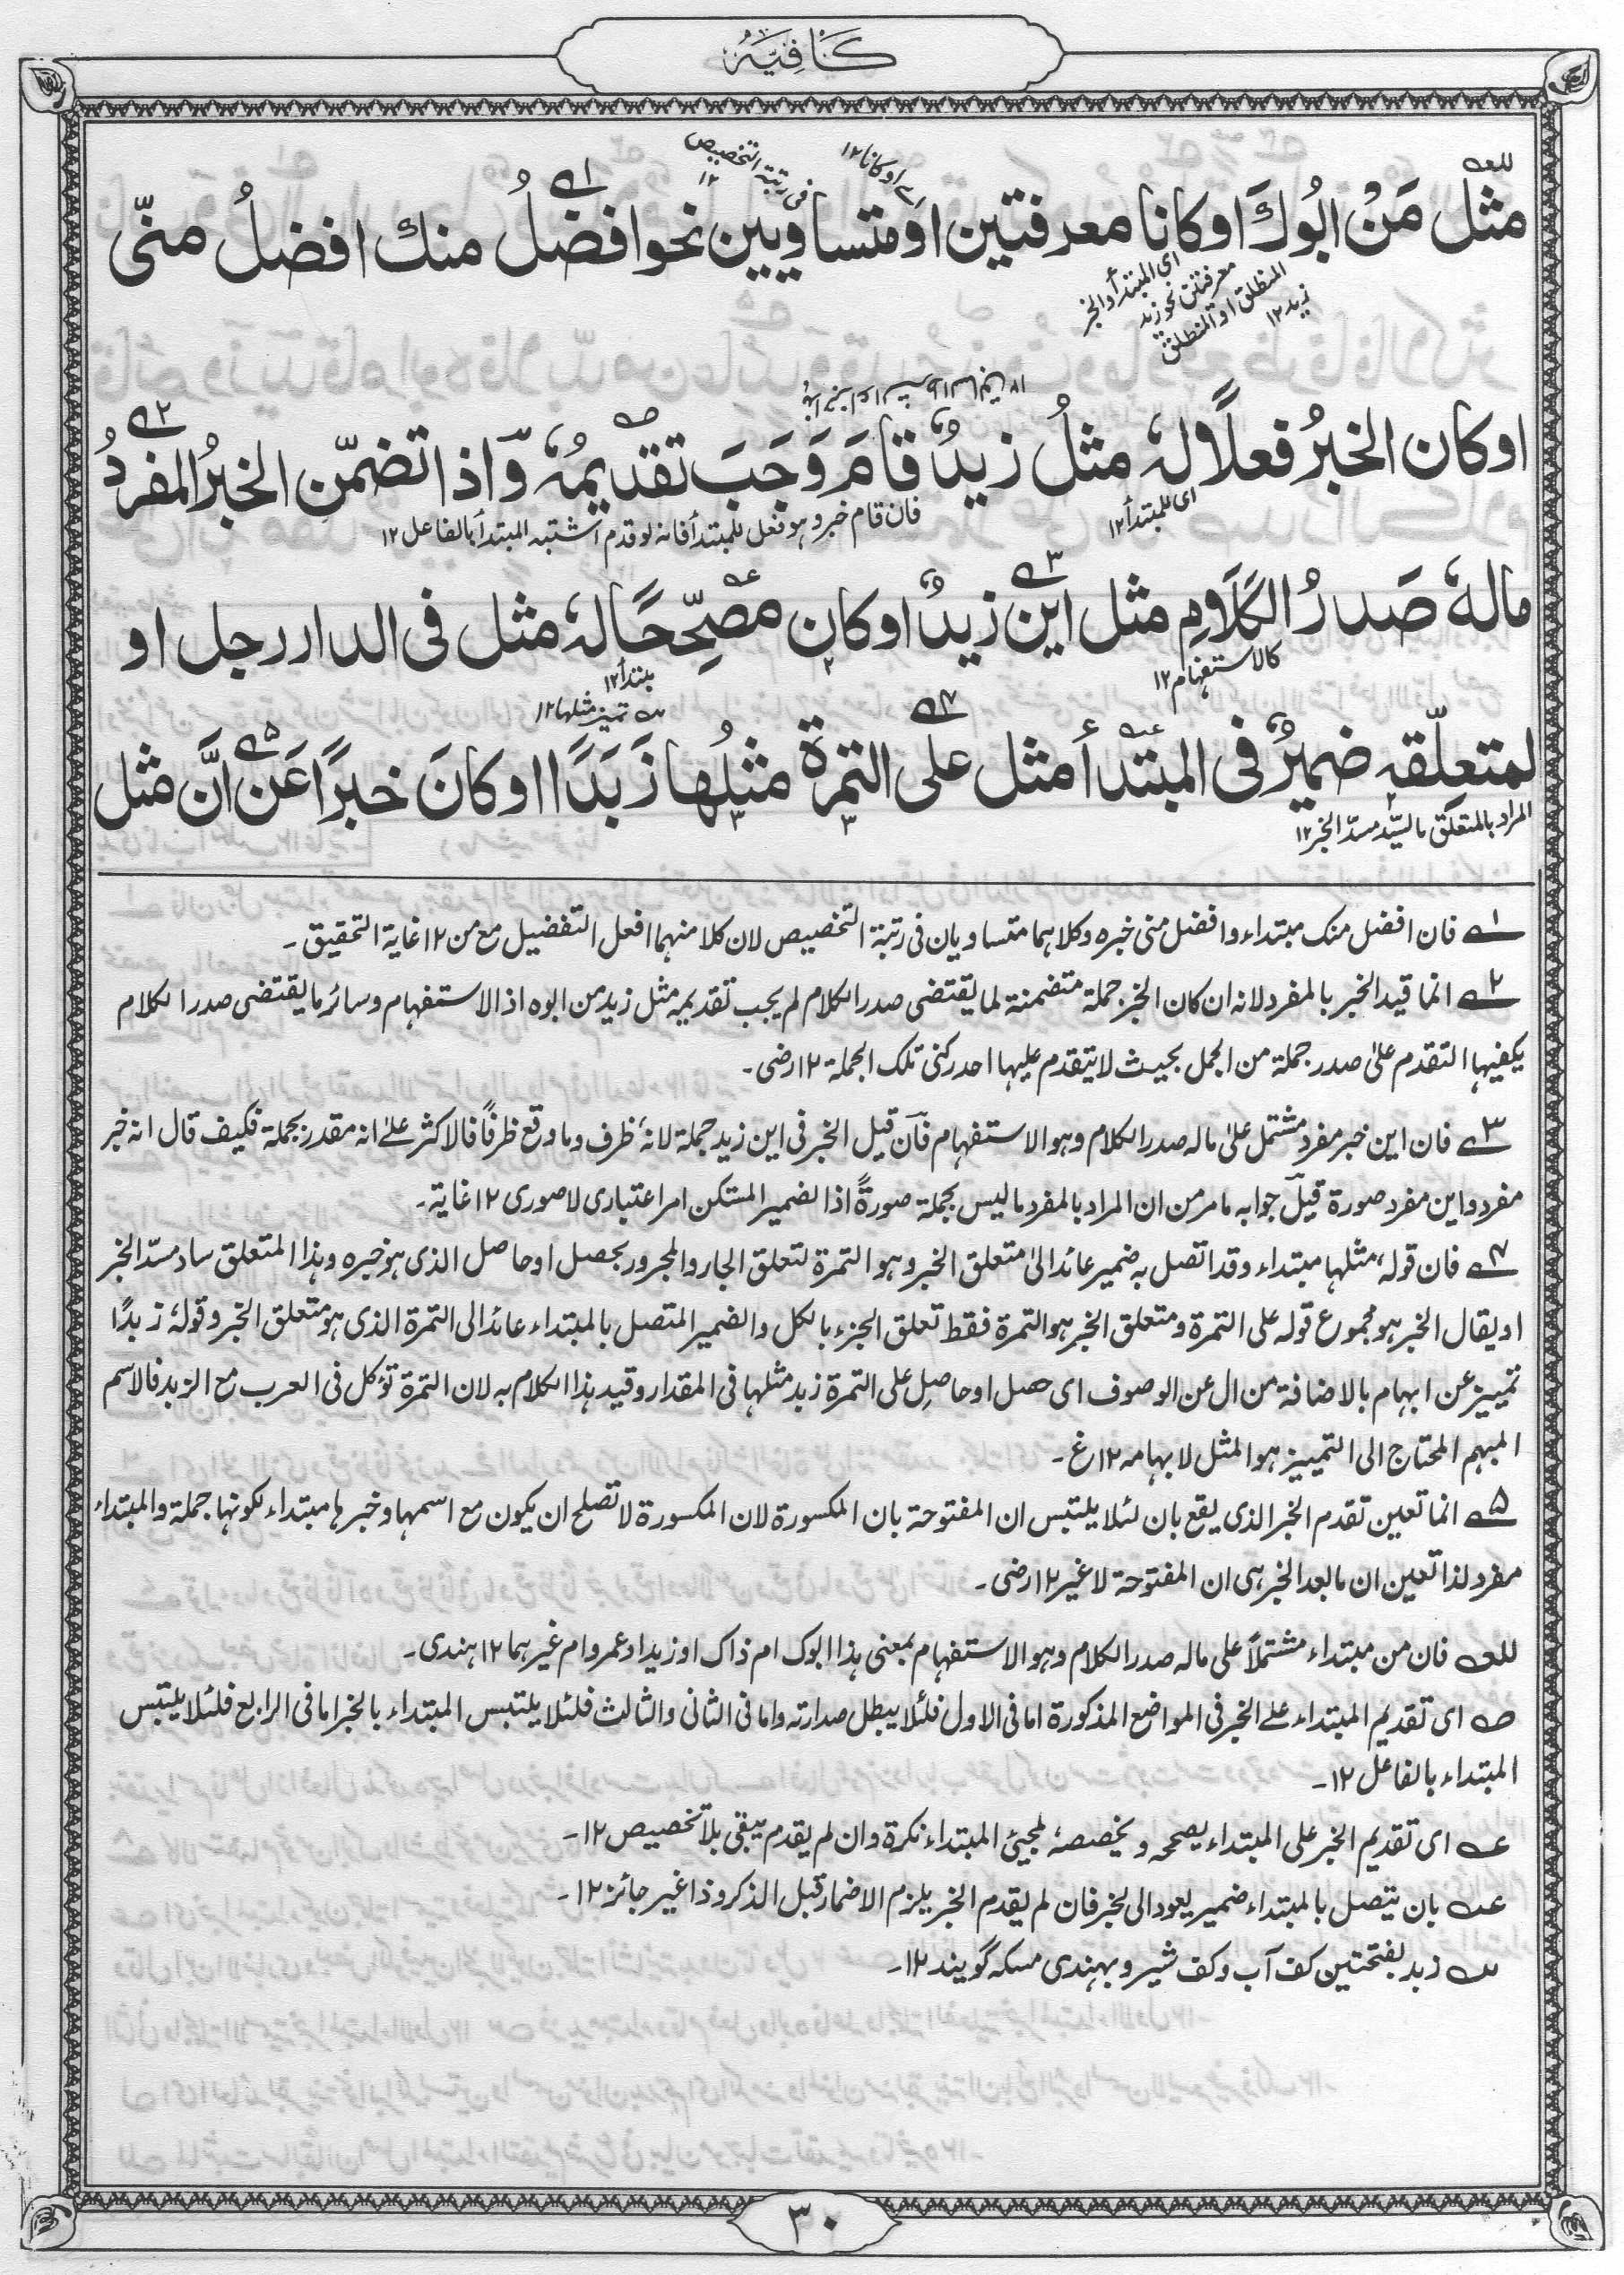 كَافِيَه
مثل مَنْ ابُوكَ اوكانا معرفتين او متساويين نحو افضلُ منك افضلُ منّى
او كانا ١٢
فى رتبة التخصيص ١٢
اى المبتدأ والخبر
معرفتين نحو زيد
المنطلق او المنطلق
زيد ١٢
اوكان الخبرُ فعلًا لهٗ مثلُ زيدٌ قامَ وَجَبَ تقديمُهٗ وَّاذا تضمّن الخبرُ المفردُ
اى للمبتدأ ١٢
فان قام خبر وهو فعل للمبتدأ فانه لو قدم اشتبه المبتدأ بالفاعل ١٢
مالهٗ صَدرُ الكَلَامِ مثل اين زيدٌ اوكان مصحِّحًا لهٗ مثل فى الدار رجل او
كالاستفهام ١٢
مبتدأ ١٢
تميز مثلها ١٢
لمتعلّقهٖ ضميرٌ فى المبتدأ مثل على التمرة مثلُها زَبَدًا اوكانَ خبرًا عَن انَّ مثل
المراد بالمتعلق ما لسيد مسدّ الخبر ١٢
١؎ فان افضل منك مبتداء وافضل منى خبره وكلاهما متساويان فى رتبة التخصيص لان كلا منهما افعل التفضيل مع من ١٢ غاية التحقيق ۔
٢؎ انما قيد الخبر بالمفرد لانه ان كان الخبر جملة متضمنة لما يقتضى صدر الكلام لم يجب تقديمه مثل زيد من ابوه اذ الاستفهام وسائر ما يقتضى صدر الكلام
يكفيها التقدم علىٰ صدر جملة من الجمل بحيث لا يتقدم عليها احد ركنى تلك الجملة ١٢ رضى ۔
٣؎ فان اين خبر مفرد مشتمل علىٰ ماله صدر الكلام وهو الاستفهام فان قيل الخبر فى اين زيد جملة لانهٗ ظرف وما وقع ظرفًا فالاكثر علىٰ انه مقدر بجملة فكيف قال انه خبر
مفرد واين مفرد صورة قيل جوابه ما مر من ان المراد بالمفرد ما ليس بجملة صورةً اذ الضمير المستكن امر اعتبارى لا صورى ١٢ غاية ۔
٤؎ فان قولهٗ مثلها مبتداء وقد اتصل به ضمير عائد الىٰ متعلق الخبر وهو التمرة لتعلق الجار والمجرور بحصل او حاصل الذى هو خبره وهذا المتعلق ساد مسدّ الخبر
او يقال الخبر هو مجموع قوله على التمرة ومتعلق الخبر هو التمرة فقط تعلق الجزء بالكل والضمير المتصل بالمبتداء عائد الى التمرة الذى هو متعلق الخبر وقولهٗ زبدًا
تمييز عن ابهام بالاضافة من ال عن الوصوف اى حصل او حاصِل على التمرة زبد مثلها فى المقدار وقيد هذا الكلام به لان التمرة تؤكل فى العرب مع الزبد فالاسم
المبهم المحتاج الى التمييز هو المثل لابهامه ١٢ غ ۔
٥؎ انما تعين تقدم الخبر الذى يقع بان لئلا يلتبس ان المفتوحة بان المكسورة لان المكسورة لا تصلح ان يكون مع اسمها وخبرها مبتداء لكونها جملة والمبتداء
مفرد لذا تعين ان ما بعد الخبر هى ان المفتوحة لا غير ١٢ رضى ۔
للعہ فان من مبتداء مشتملًا على ماله صدر الكلام وهو الاستفهام بمعنى هذا ابوك ام ذاك او زيد او عمرو ام غيرهما ١٢ هندى ۔
صہ اى تقديم المبتداء علے الخبر فى المواضع المذكورة اما فى الاول فلئلا يبطل صدارته واما فى الثانى والثالث فلئلا يلتبس المبتداء بالخبر اما فى الرابع فلئلا يلتبس
المبتداء بالفاعل ١٢ ۔
عہ اى تقديم الخبر على المبتداء يصححه ويخصصهٗ لمجيئ المبتداء نكرة وان لم يقدم يبقى بلا تخصيص ١٢ ۔
عہ بان يتصل بالمبتداء ضمير يعود الى لخبر فان لم يقدم الخبر يلزم الاضمار قبل الذكر وذا غير جائز ١٢ ۔
سہ زبد بفتحتين كف آب وكف شير وبهندى مسكه گويند ١٢ ۔
٣٠